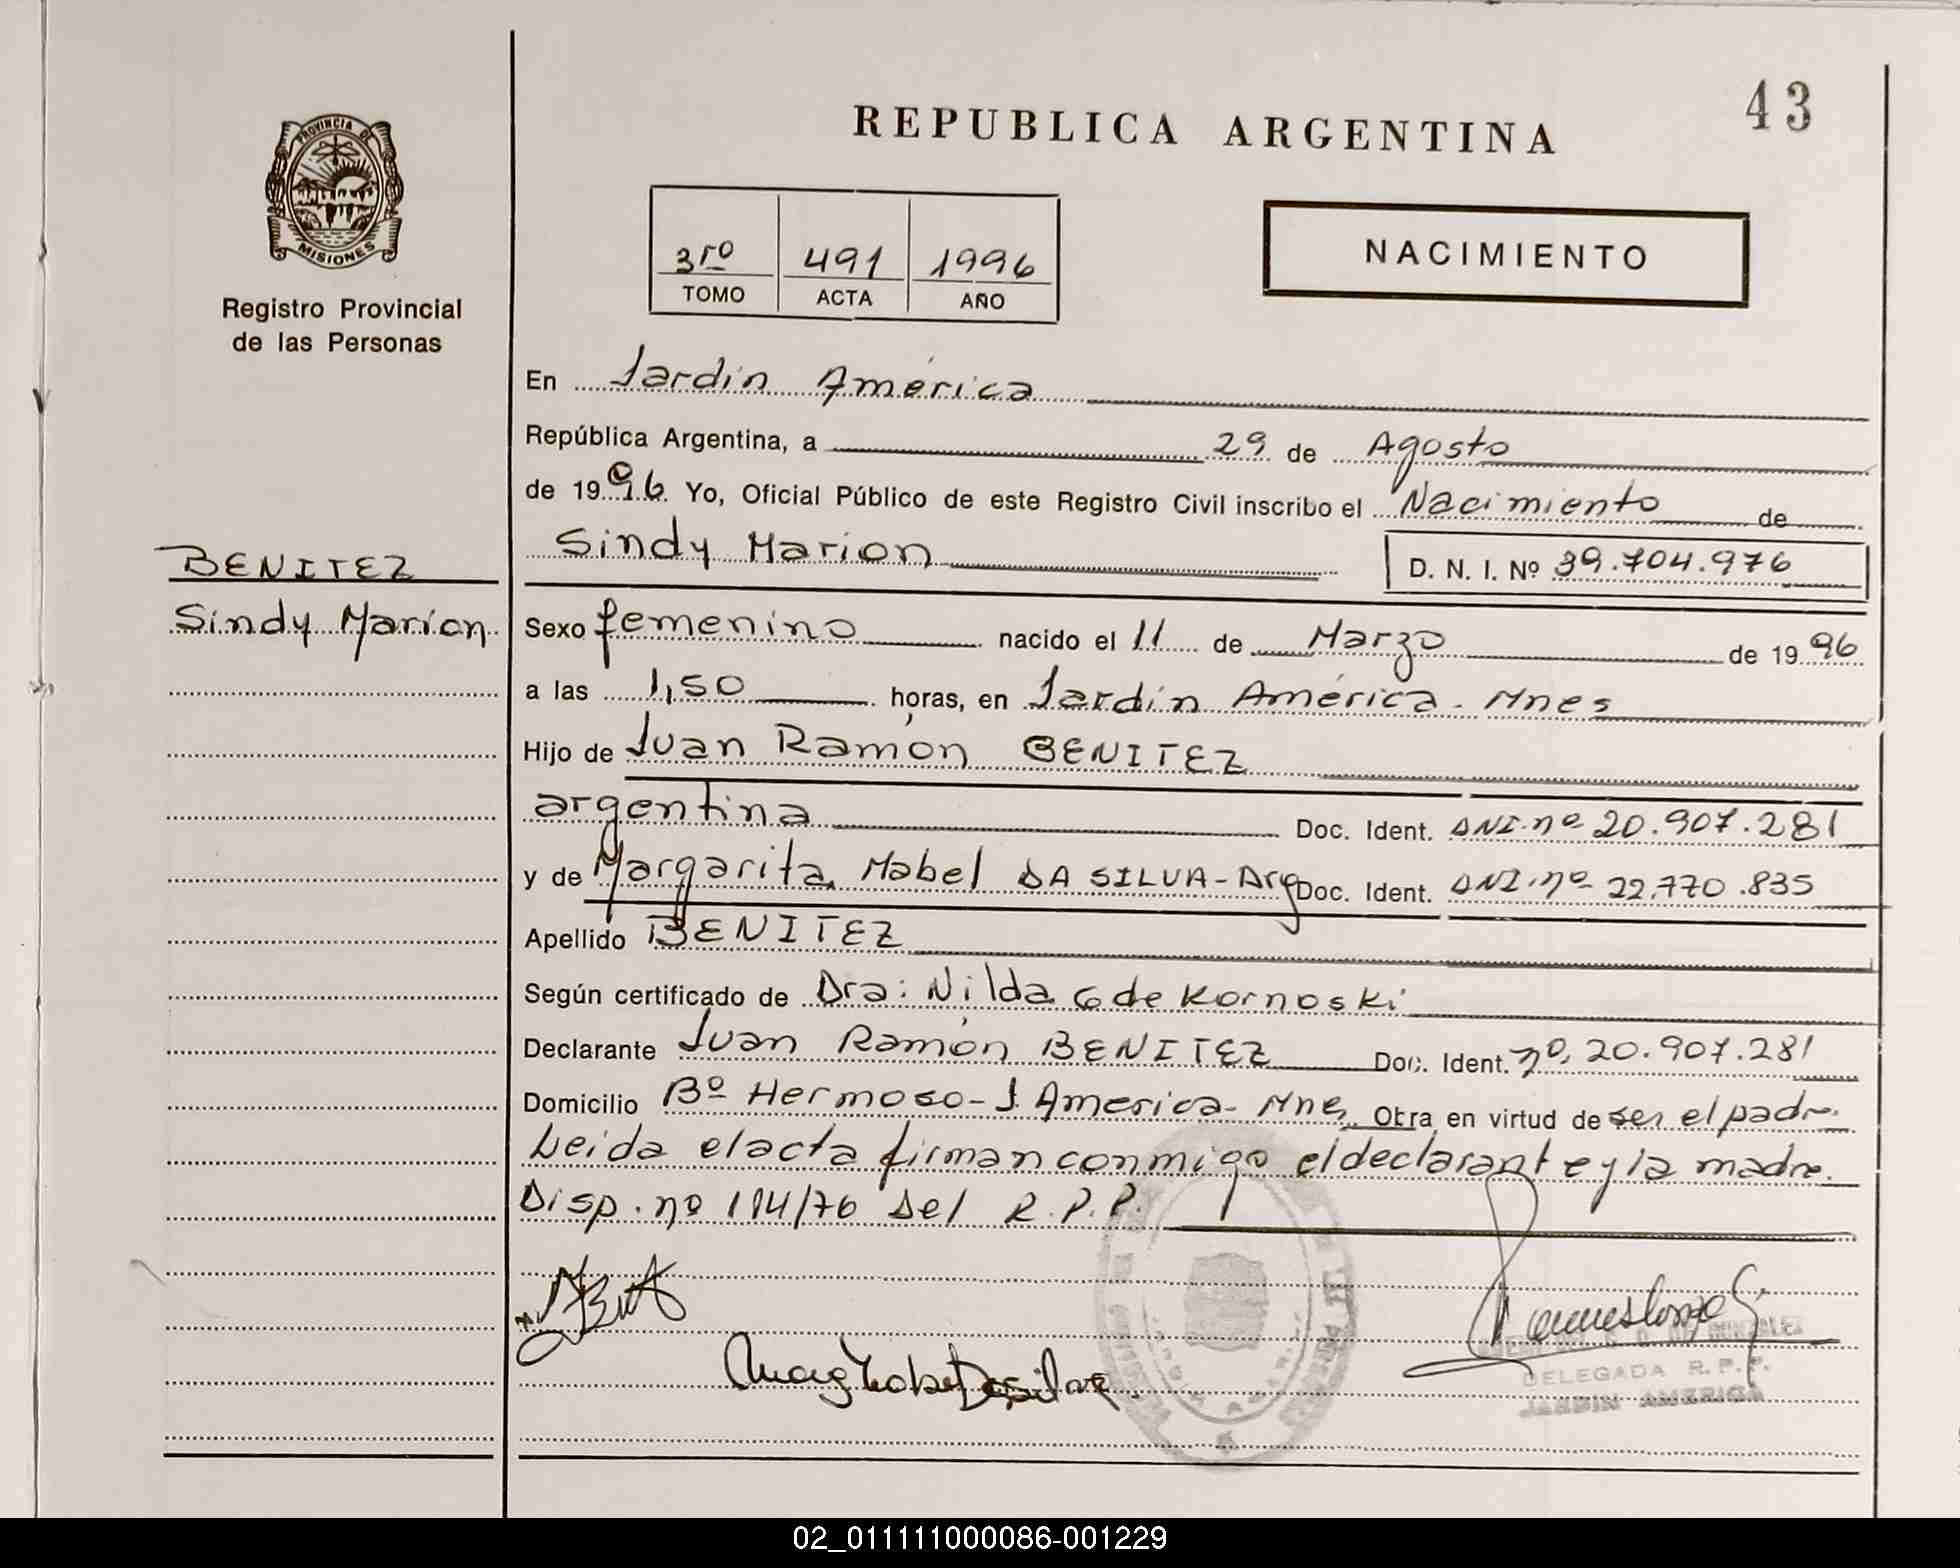 43
REPUBLICA ARGENTINA
PROVINCIA DE
MISIONES
Registro Provincial
de las Personas
3ro 491 1996
TOMO ACTA AÑO
NACIMIENTO
En Jardín América
República Argentina, a 29 de Agosto
de 1996 Yo, Oficial Público de este Registro Civil inscribo el Nacimiento de
Sindy Marion D. N. I. Nº 39.704.976
BENITEZ
Sindy Marion
Sexo femenino nacido el 11 de Marzo de 1996
a las 1,50 horas, en Jardín América - Mnes
Hijo de Juan Ramón BENITEZ
argentina Doc. Ident. DNI. nº 20.907.281
y de Margarita Mabel DA SILVA - Arg Doc. Ident. DNI. nº 22.770.835
Apellido BENITEZ
Según certificado de Dra: Nilda G de Kornoski
Declarante Juan Ramón BENITEZ Doc. Ident. nº. 20.907.281
Domicilio Bº Hermoso - J. America - Mnes Obra en virtud de ser el padre.
Leida el acta firman conmigo el declarante y la madre.
Disp. nº 114/76 Del R.P.P.
DELEGADA R. P. P.
JARDIN AMERICA
02_011111000086-001229